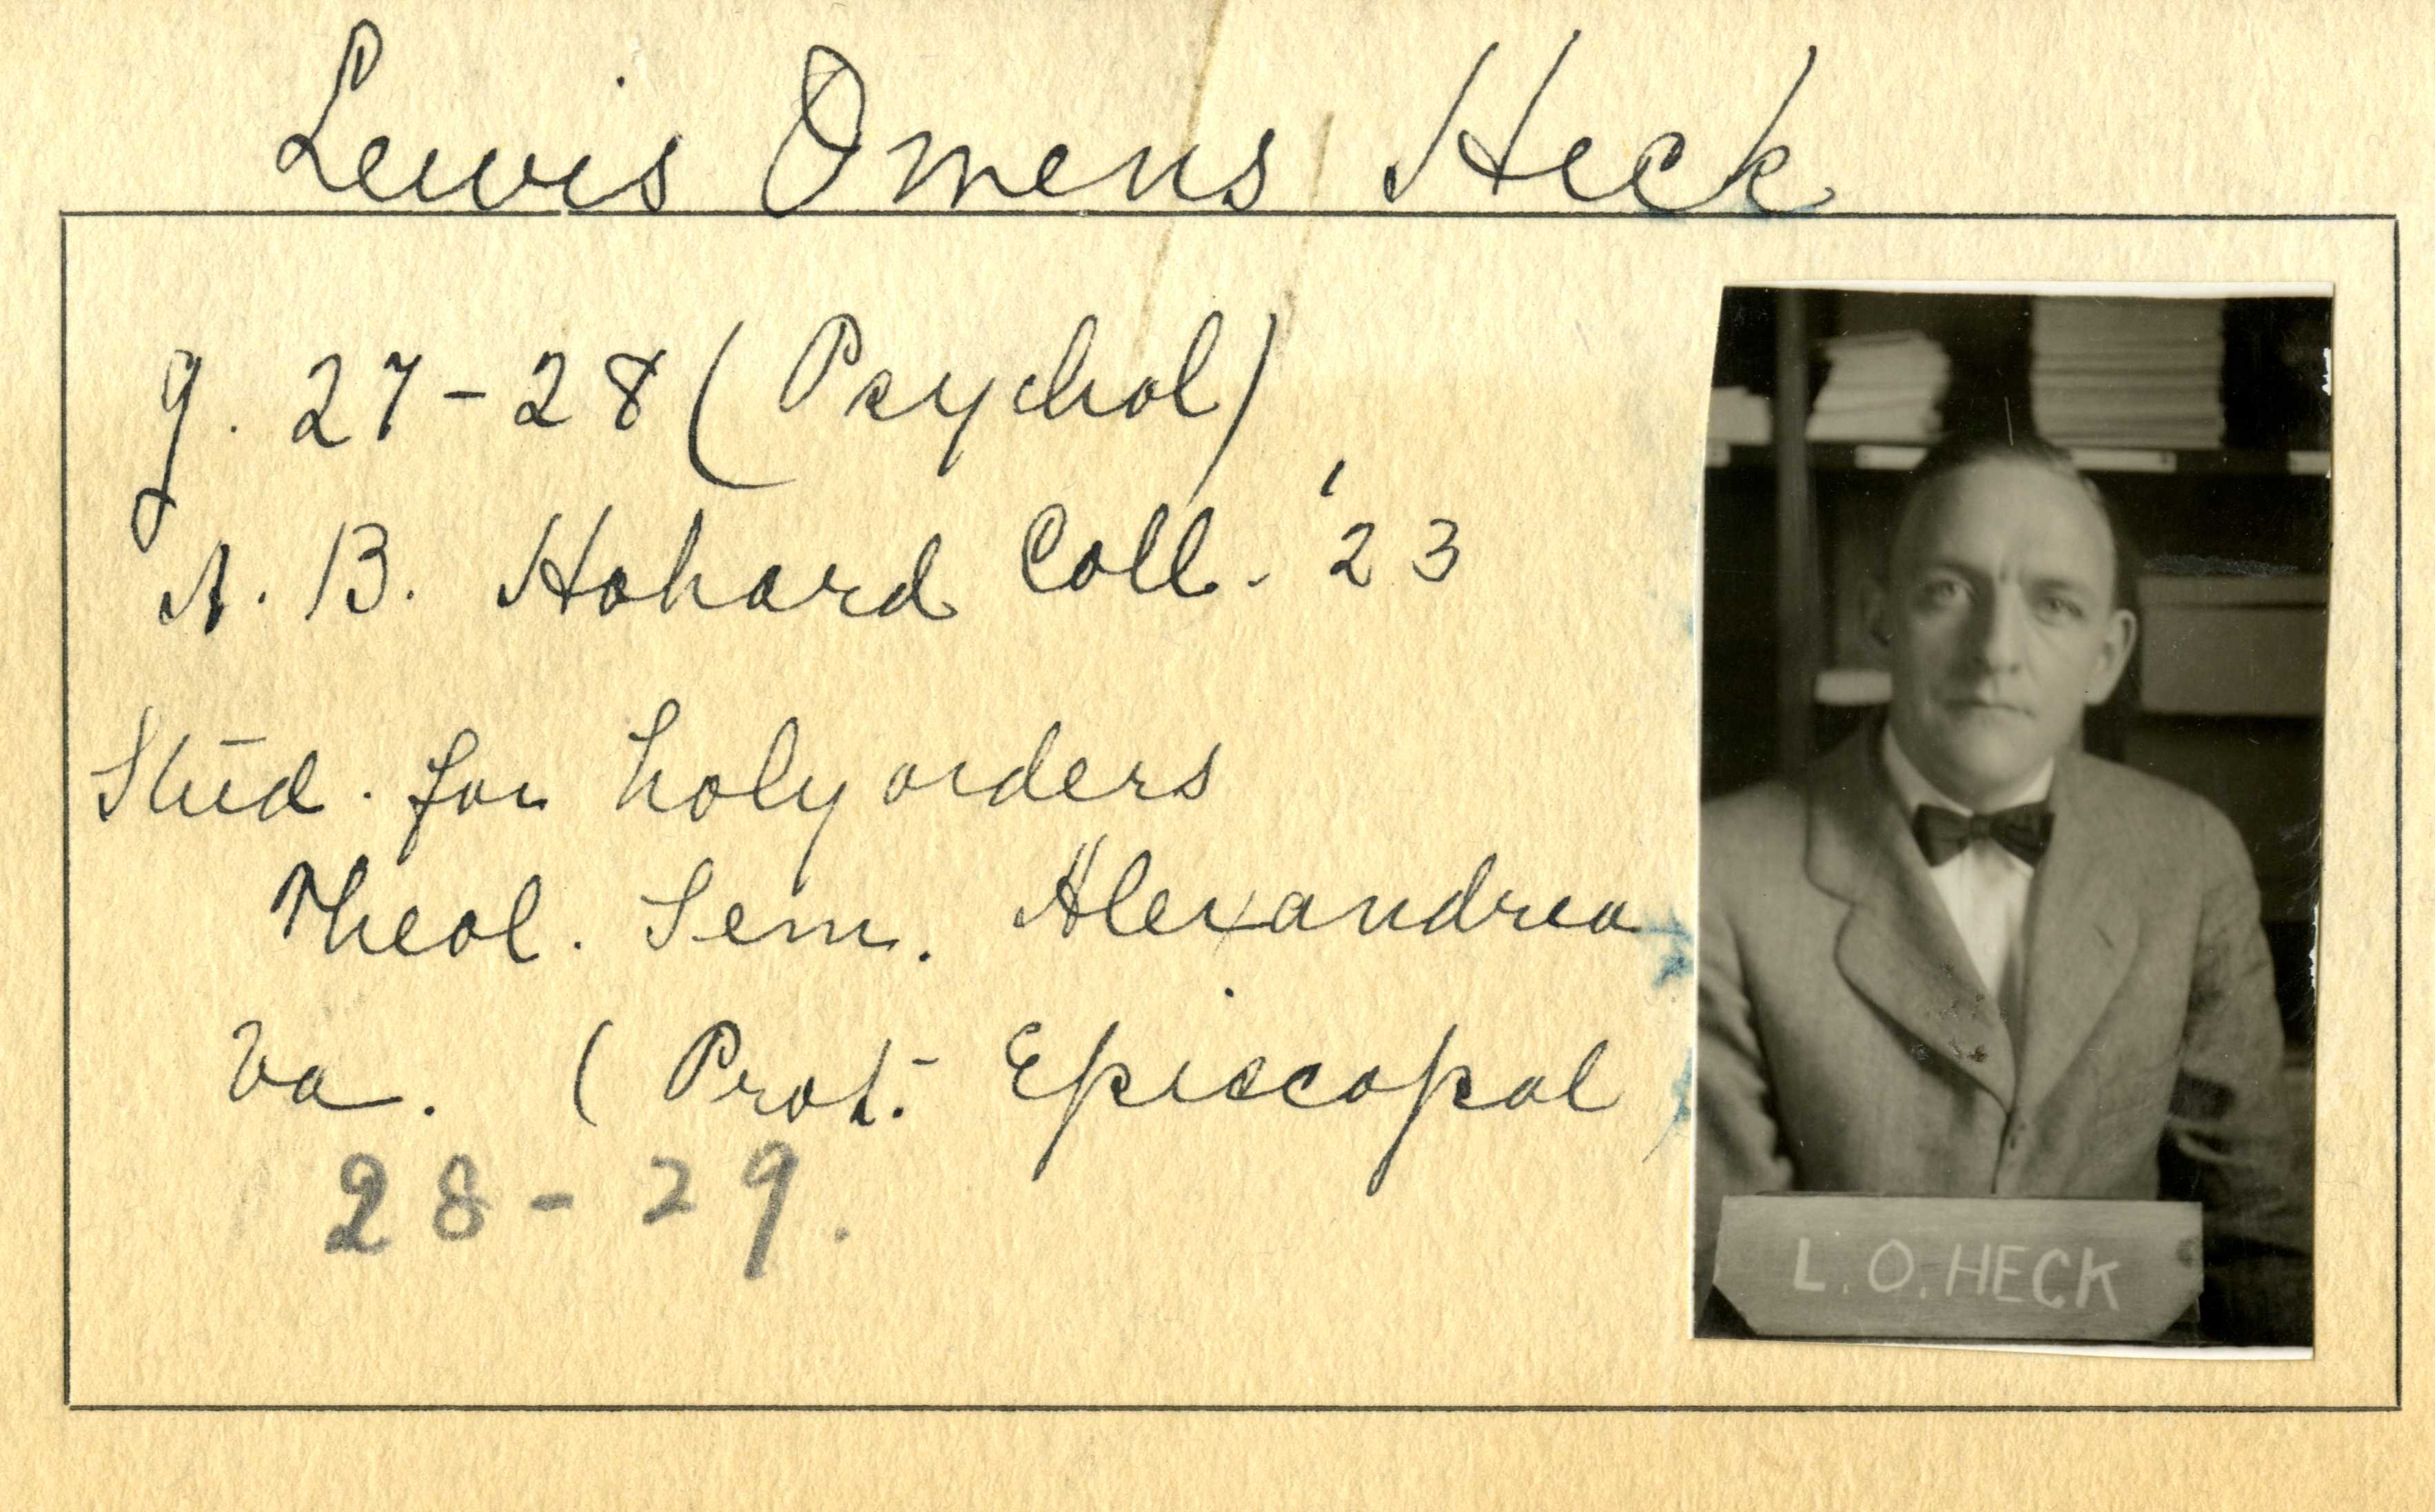 Lewis Omens Heck
g. 27-28 (Psychol)
A. B. Hohard Coll. '23
Stud. for holy orders
Theol. Sem. Alexandria
Va. (Prot. Episcopal
28-29.
L. O. HECK